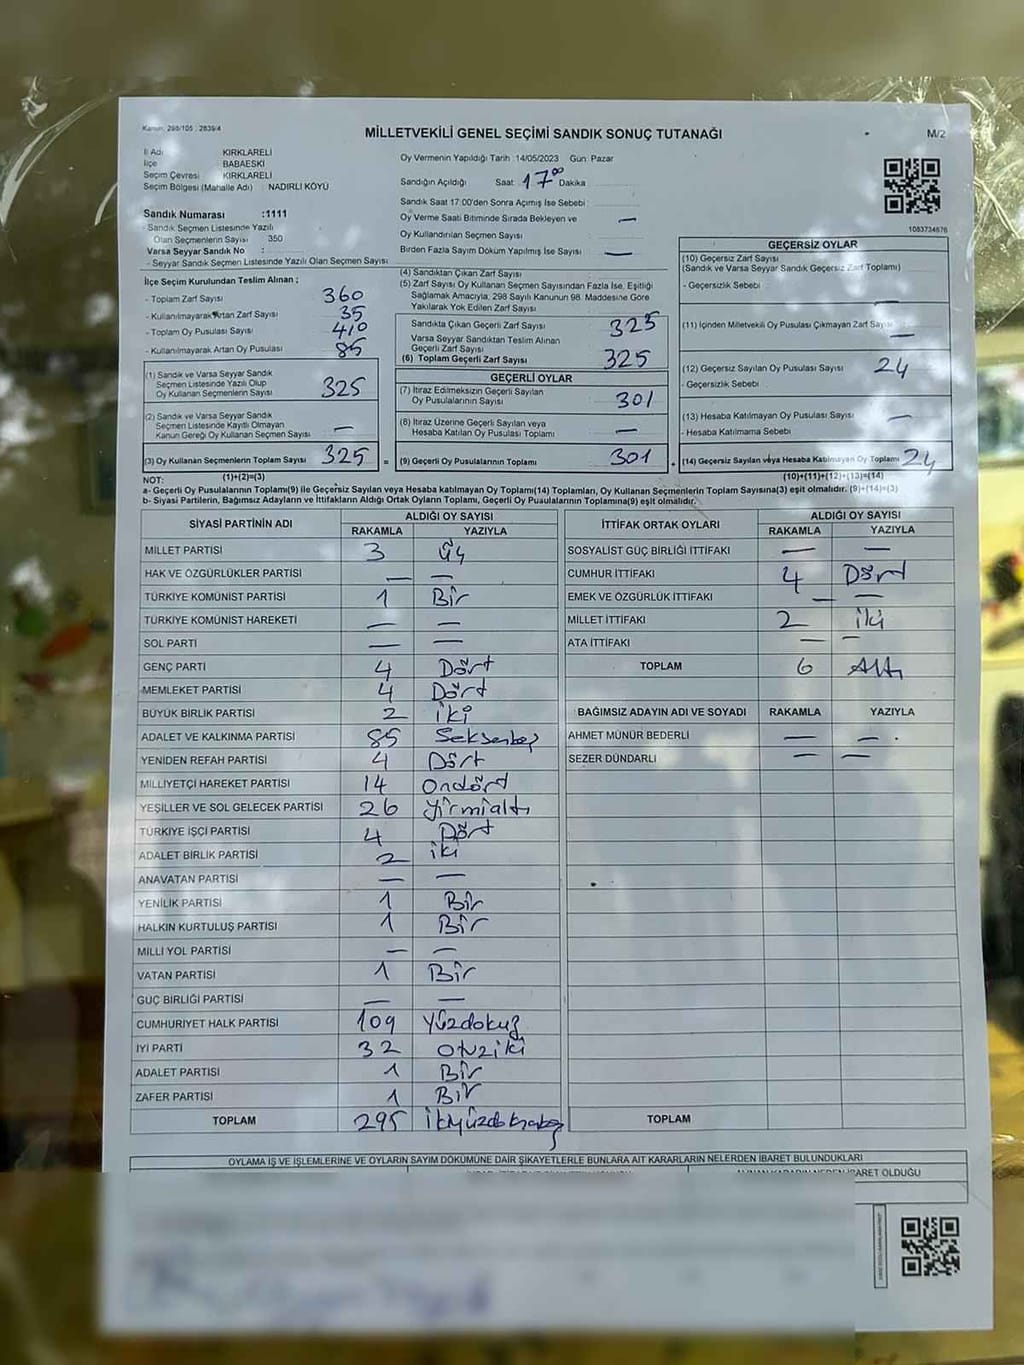 Kanun: 298/105 : 2839/4
MİLLETVEKİLİ GENEL SEÇİMİ SANDIK SONUÇ TUTANAĞI
M/2
İl Adı KIRKLARELİ
İlçe BABAESKİ
Seçim Çevresi KIRKLARELİ
Seçim Bölgesi (Mahalle Adı) : NADIRLI KÖYÜ
Sandık Numarası :1111
- Sandık Seçmen Listesinde Yazılı
Olan Seçmenlerin Sayısı 350
Varsa Seyyar Sandık No :
- Seyyar Sandık Seçmen Listesinde Yazılı Olan Seçmen Sayısı
Oy Vermenin Yapıldığı Tarih :14/05/2023 Gün: Pazar
Sandığın Açıldığı Saat: 17⁰⁰ Dakika
Sandık Saat 17:00'den Sonra Açımış İse Sebebi
Oy Verme Saati Bitiminde Sırada Bekleyen ve —
Oy Kullandırılan Seçmen Sayısı
Birden Fazla Sayım Döküm Yapılmış İse Sayısı —
1083734676
İlçe Seçim Kurulundan Teslim Alınan ;
- Toplam Zarf Sayısı 360
- Kullanılmayarak Artan Zarf Sayısı 35
- Toplam Oy Pusulası Sayısı 410
- Kullanılmayarak Artan Oy Pusulası 85
(1) Sandık ve Varsa Seyyar Sandık
Seçmen Listesinde Yazılı Olup
Oy Kullanan Seçmenlerin Sayısı 325
(2) Sandık ve Varsa Seyyar Sandık
Seçmen Listesinde Kayıtlı Olmayan
Kanun Gereği Oy Kullanan Seçmen Sayısı —
(3) Oy Kullanan Seçmenlerin Toplam Sayısı 325 =
(4) Sandıktan Çıkan Zarf Sayısı
(5) Zarf Sayısı Oy Kullanan Seçmen Sayısından Fazla İse, Eşitliği
Sağlamak Amacıyla, 298 Sayılı Kanunun 98. Maddesine Göre
Yakılarak Yok Edilen Zarf Sayısı
Sandıkta Çıkan Geçerli Zarf Sayısı 325
Varsa Seyyar Sandıktan Teslim Alınan
Geçerli Zarf Sayısı
(6) Toplam Geçerli Zarf Sayısı 325
GEÇERLİ OYLAR
(7) İtiraz Edilmeksizin Geçerli Sayılan
Oy Pusulalarının Sayısı 301
(8) İtiraz Üzerine Geçerli Sayılan veya
Hesaba Katılan Oy Pusulası Toplamı —
(9) Geçerli Oy Pusulalarının Toplamı 301 +
GEÇERSİZ OYLAR
(10) Geçersiz Zarf Sayısı
(Sandık ve Varsa Seyyar Sandık Geçersiz Zarf Toplamı)
- Geçersizlik Sebebi —
(11) İçinden Milletvekili Oy Pusulası Çıkmayan Zarf Sayısı —
(12) Geçersiz Sayılan Oy Pusulası Sayısı 24
- Geçersizlik Sebebi
(13) Hesaba Katılmayan Oy Pusulası Sayısı —
- Hesaba Katılmama Sebebi
(14) Geçersiz Sayılan veya Hesaba Katılmayan Oy Toplamı 24
NOT: (1)+(2)=(3) (10)+(11)+(12)+(13)=(14)
a- Geçerli Oy Pusulalarının Toplamı(9) ile Geçersiz Sayılan veya Hesaba katılmayan Oy Toplamı(14) Toplamları, Oy Kullanan Seçmenlerin Toplam Sayısına(3) eşit olmalıdır. (9)+(14)=(3)
b- Siyasi Partilerin, Bağımsız Adayların ve İttifakların Aldığı Ortak Oyların Toplamı, Geçerli Oy Pusulalarının Toplamına(9) eşit olmalıdır.
SİYASİ PARTİNİN ADI ALDIĞI OY SAYISI
RAKAMLA YAZIYLA
MİLLET PARTİSİ 3 Üç
HAK VE ÖZGÜRLÜKLER PARTİSİ — —
TÜRKİYE KOMÜNİST PARTİSİ 1 Bir
TÜRKİYE KOMÜNİST HAREKETİ — —
SOL PARTİ — —
GENÇ PARTİ 4 Dört
MEMLEKET PARTİSİ 4 Dört
BÜYÜK BİRLİK PARTİSİ 2 iki
ADALET VE KALKINMA PARTİSİ 85 Seksenbeş
YENİDEN REFAH PARTİSİ 4 Dört
MİLLİYETÇİ HAREKET PARTİSİ 14 Ondört
YEŞİLLER VE SOL GELECEK PARTİSİ 26 yirmialtı
TÜRKİYE İŞÇİ PARTİSİ 4 Dört
ADALET BİRLİK PARTİSİ 2 iki
ANAVATAN PARTİSİ — —
YENİLİK PARTİSİ 1 Bir
HALKIN KURTULUŞ PARTİSİ 1 Bir
MİLLİ YOL PARTİSİ — —
VATAN PARTİSİ 1 Bir
GÜÇ BİRLİĞİ PARTİSİ — —
CUMHURİYET HALK PARTİSİ 109 Yüzdokuz
İYİ PARTİ 32 otuziki
ADALET PARTİSİ 1 Bir
ZAFER PARTİSİ 1 Bir
TOPLAM 295
İTTİFAK ORTAK OYLARI ALDIĞI OY SAYISI
RAKAMLA YAZIYLA
SOSYALİST GÜÇ BİRLİĞİ İTTİFAKI — —
CUMHUR İTTİFAKI 4 Dört
EMEK VE ÖZGÜRLÜK İTTİFAKI — —
MİLLET İTTİFAKI 2 iki
ATA İTTİFAKI — —
TOPLAM 6 Altı
BAĞIMSIZ ADAYIN ADI VE SOYADI RAKAMLA YAZIYLA
AHMET MÜNÜR BEDERLİ — —
SEZER DÜNDARLI — —
TOPLAM
OYLAMA İŞ VE İŞLEMLERİNE VE OYLARIN SAYIM DÖKÜMÜNE DAİR ŞİKAYETLERLE BUNLARA AİT KARARLARIN NELERDEN İBARET BULUNDUKLARI
İBARET OLDUĞU